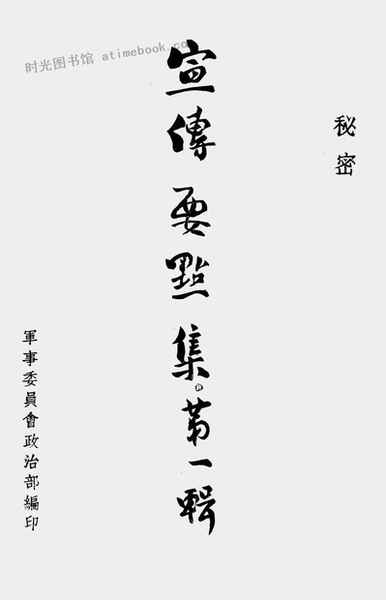 时光图书馆 atimebook.co
秘密
宣傳要點集第一輯
軍事委員會政治部編印